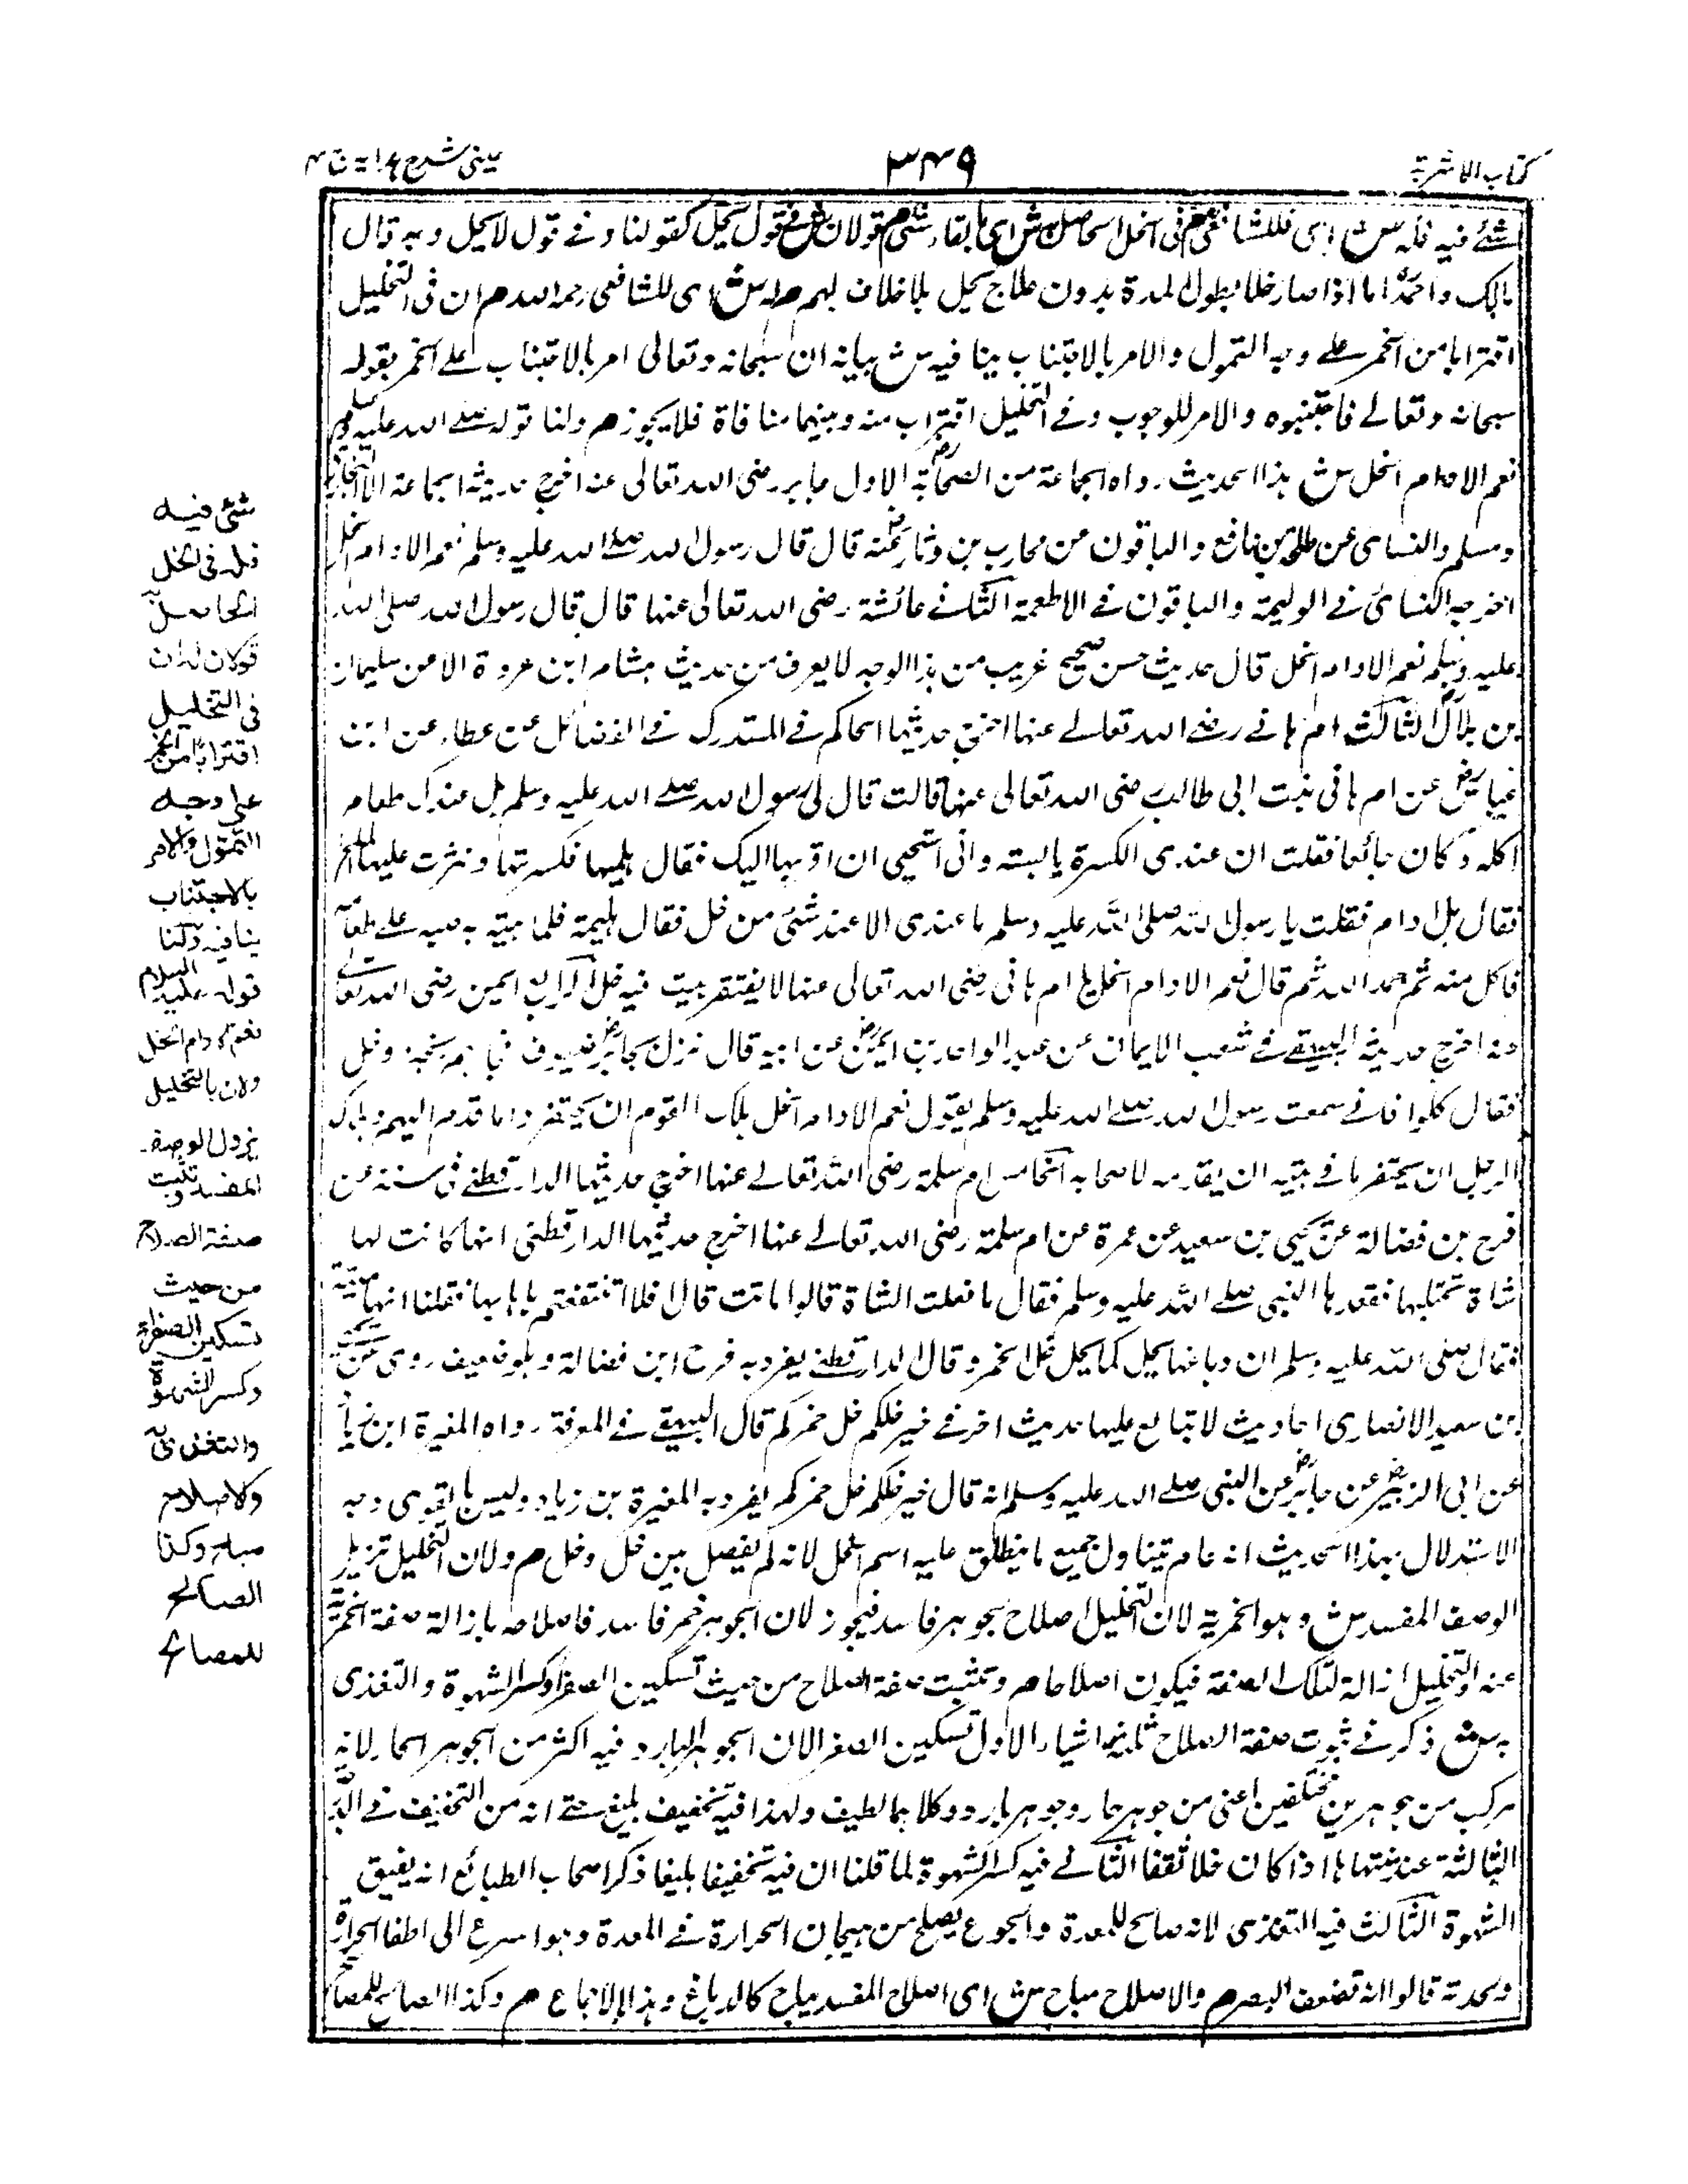 كتاب الاشربة
٣٤٩
عينى شرح هداية ج ٤
شئ فيه فله ش اى فللشافعى م فى الخل الحاصل به ش اى بالقاء شئ م قولان ش فى قول يحل كقولنا وفى قول لا يحل وبه قال
مالك واحمد اما اذا صار خلا بطول المدة بدون علاج يحل بلا خلاف لهم م له ش اى للشافعى رحمه الله م ان فى التخليل
اقترابا من الخمر على وجه التمول والامر بالاجتناب ينافيه ش بيانه ان سبحانه وتعالى امر بالاجتناب على الخمر بقوله
سبحانه وتعالى فاجتنبوه والامر للوجوب وفى التخليل اقتراب منه وبينهما منافاة فلا يجوز م ولنا قوله صلى الله عليه وسلم
نعم الادام الخل ش هذا الحديث رواه الجماعة من الصحابة الاول جابر رضى الله تعالى عنه اخرج حديثه الجماعة الا البخارى
ومسلم والنسائى عن طلحة بن نافع والباقون عن محارب بن دثار عنه قال قال رسول الله صلى الله عليه وسلم نعم الادام الخل
اخرجه النسائى فى الوليمة والباقون فى الاطعمة الثانى عائشة رضى الله تعالى عنها قال قال رسول الله صلى الله
عليه وسلم نعم الادام الخل قال حديث حسن صحيح غريب من هذا الوجه لا يعرف من حديث هشام ابن عروة الا من سليمان
بن بلال الثالث ام هانى رضى الله تعالى عنها اخرج حديثها الحاكم فى المستدرك فى الفضائل عن عطاء عن ابن
عباس عن ام هانى بنت ابى طالب رضى الله تعالى عنها قالت قال لى رسول الله صلى الله عليه وسلم هل عندك طعام
اكله وكان جائعا فقلت ان عندى الكسرة يابسة وانى استحيى ان اقربها اليك فقال هلميها فكسرتها ونثرت عليها الملح
فقال هل ادام فقلت يا رسول الله صلى الله عليه وسلم ما عندى الا عند شئ من خل فقال هلميه فلما جئته به صبه على طعامه
فاكل منه ثم حمد الله ثم قال نعم الادام الخل يا ام هانى رضى الله تعالى عنها لا يفتقر بيت فيه خل الرابع ايمن رضى الله تعالى
عنه اخرج حديثه البيهقى فى شعب الايمان عن عبد الواحد بن ايمن عن ابيه قال نزل بجابر ضيوف فجاءهم بخبز وخل
فقال كلوا فانى سمعت رسول الله صلى الله عليه وسلم يقول نعم الادام الخل هلاك القوم ان يحتقروا ما قدم اليهم وهلاك
الرجل ان يحتقر ما فى بيته ان يقدمه لاصحابه الخامس ام سلمة رضى الله تعالى عنها اخرج حديثها الدارقطنى فى سننه عن
فرج بن فضالة عن يحيى بن سعيد عن عمرة عن ام سلمة رضى الله تعالى عنها اخرج حديثها الدارقطنى انها كانت لها
شاة تحتلبها ففقدها النبى صلى الله عليه وسلم فقال ما فعلت الشاة قالوا ماتت قال افلا انتفعتم باهابها فقلنا انها ميتة
فقال صلى الله عليه وسلم ان دباغها يحل كما يحل خل الخمر وقال الدارقطنى يفرد به فرج ابن فضالة وهو ضعيف روى عن يحيى
بن سعيد الانصارى احاديث لا يتابع عليها حديث اخر فى خير خلكم خل خمركم قال البيهقى فى المعرفة رواه المغيرة ابن زياد
عن ابى الزبير عن جابر عن النبى صلى الله عليه وسلم انه قال خير خلكم خل خمركم يفرد به المغيرة بن زياد وليس بالقوى وجه
الاستدلال بهذا الحديث انه عام يتناول جميع ما ينطلق عليه اسم الخل لانه لم يفصل بين خل وخل م ولان التخليل تزيل
الوصف المفسد ش وهو الخمرية لان التخليل اصلاح لجوهر فاسد فيجوز لان الجوهر خمر فاسد فاصلاحه بازالة صفة الخمرية
عنه والتخليل ازالة لتلك الصفة فيكون اصلاحا م وتثبت صفة الصلاح من حيث تسكين الصفرا وكسر الشهوة والتغذى
به ش ذكر فى ثبوت صفة الصلاح ثلاثة اشياء الاول تسكين الصفرا لان الجوهر البارد فيه اكثر من الجوهر الحار لانه
مركب من جوهرين مختلفين اعنى من جوهر حار وجوهر بارد وكلاهما لطيف ولهذا فيه تخفيف بليغ حتى انه من التخفيف فى الدرجة
الثالثة عند منتهاها اذا كان خلا ثقفا الثانى فيه كسر الشهوة لما قلنا ان فيه تخفيفا بليغا ذكر اصحاب الطبائع انه يفيق
الشهوة الثالث فيه التغذى لانه صالح للمعدة والجوع يصلح من هيجان الحرارة فى المعدة وهو اسرع الى اطفا الحرارة
ولحدته قالوا انه تضعف البصر م والاصلاح مباح ش اى اصلاح المفسد مباح كالدباغ وهذا بالاجماع م وكذا الصالح للمصالح
شئ فيه
فله فى الخل
الحاصل به
قولان له ان
فى التخليل
اقترابا من الخمر
على وجه
التمول والامر
بالاجتناب
ينافيه ولنا
قوله عليه السلام
نعم الادام الخل
ولان بالتخليل
يزول الوصف
المفسد وتثبت
صفة الصلاح
من حيث
تسكين الصفراء
وكسر الشهوة
والتغذى به
والاصلاح
مباح وكذا
الصالح
للمصالح